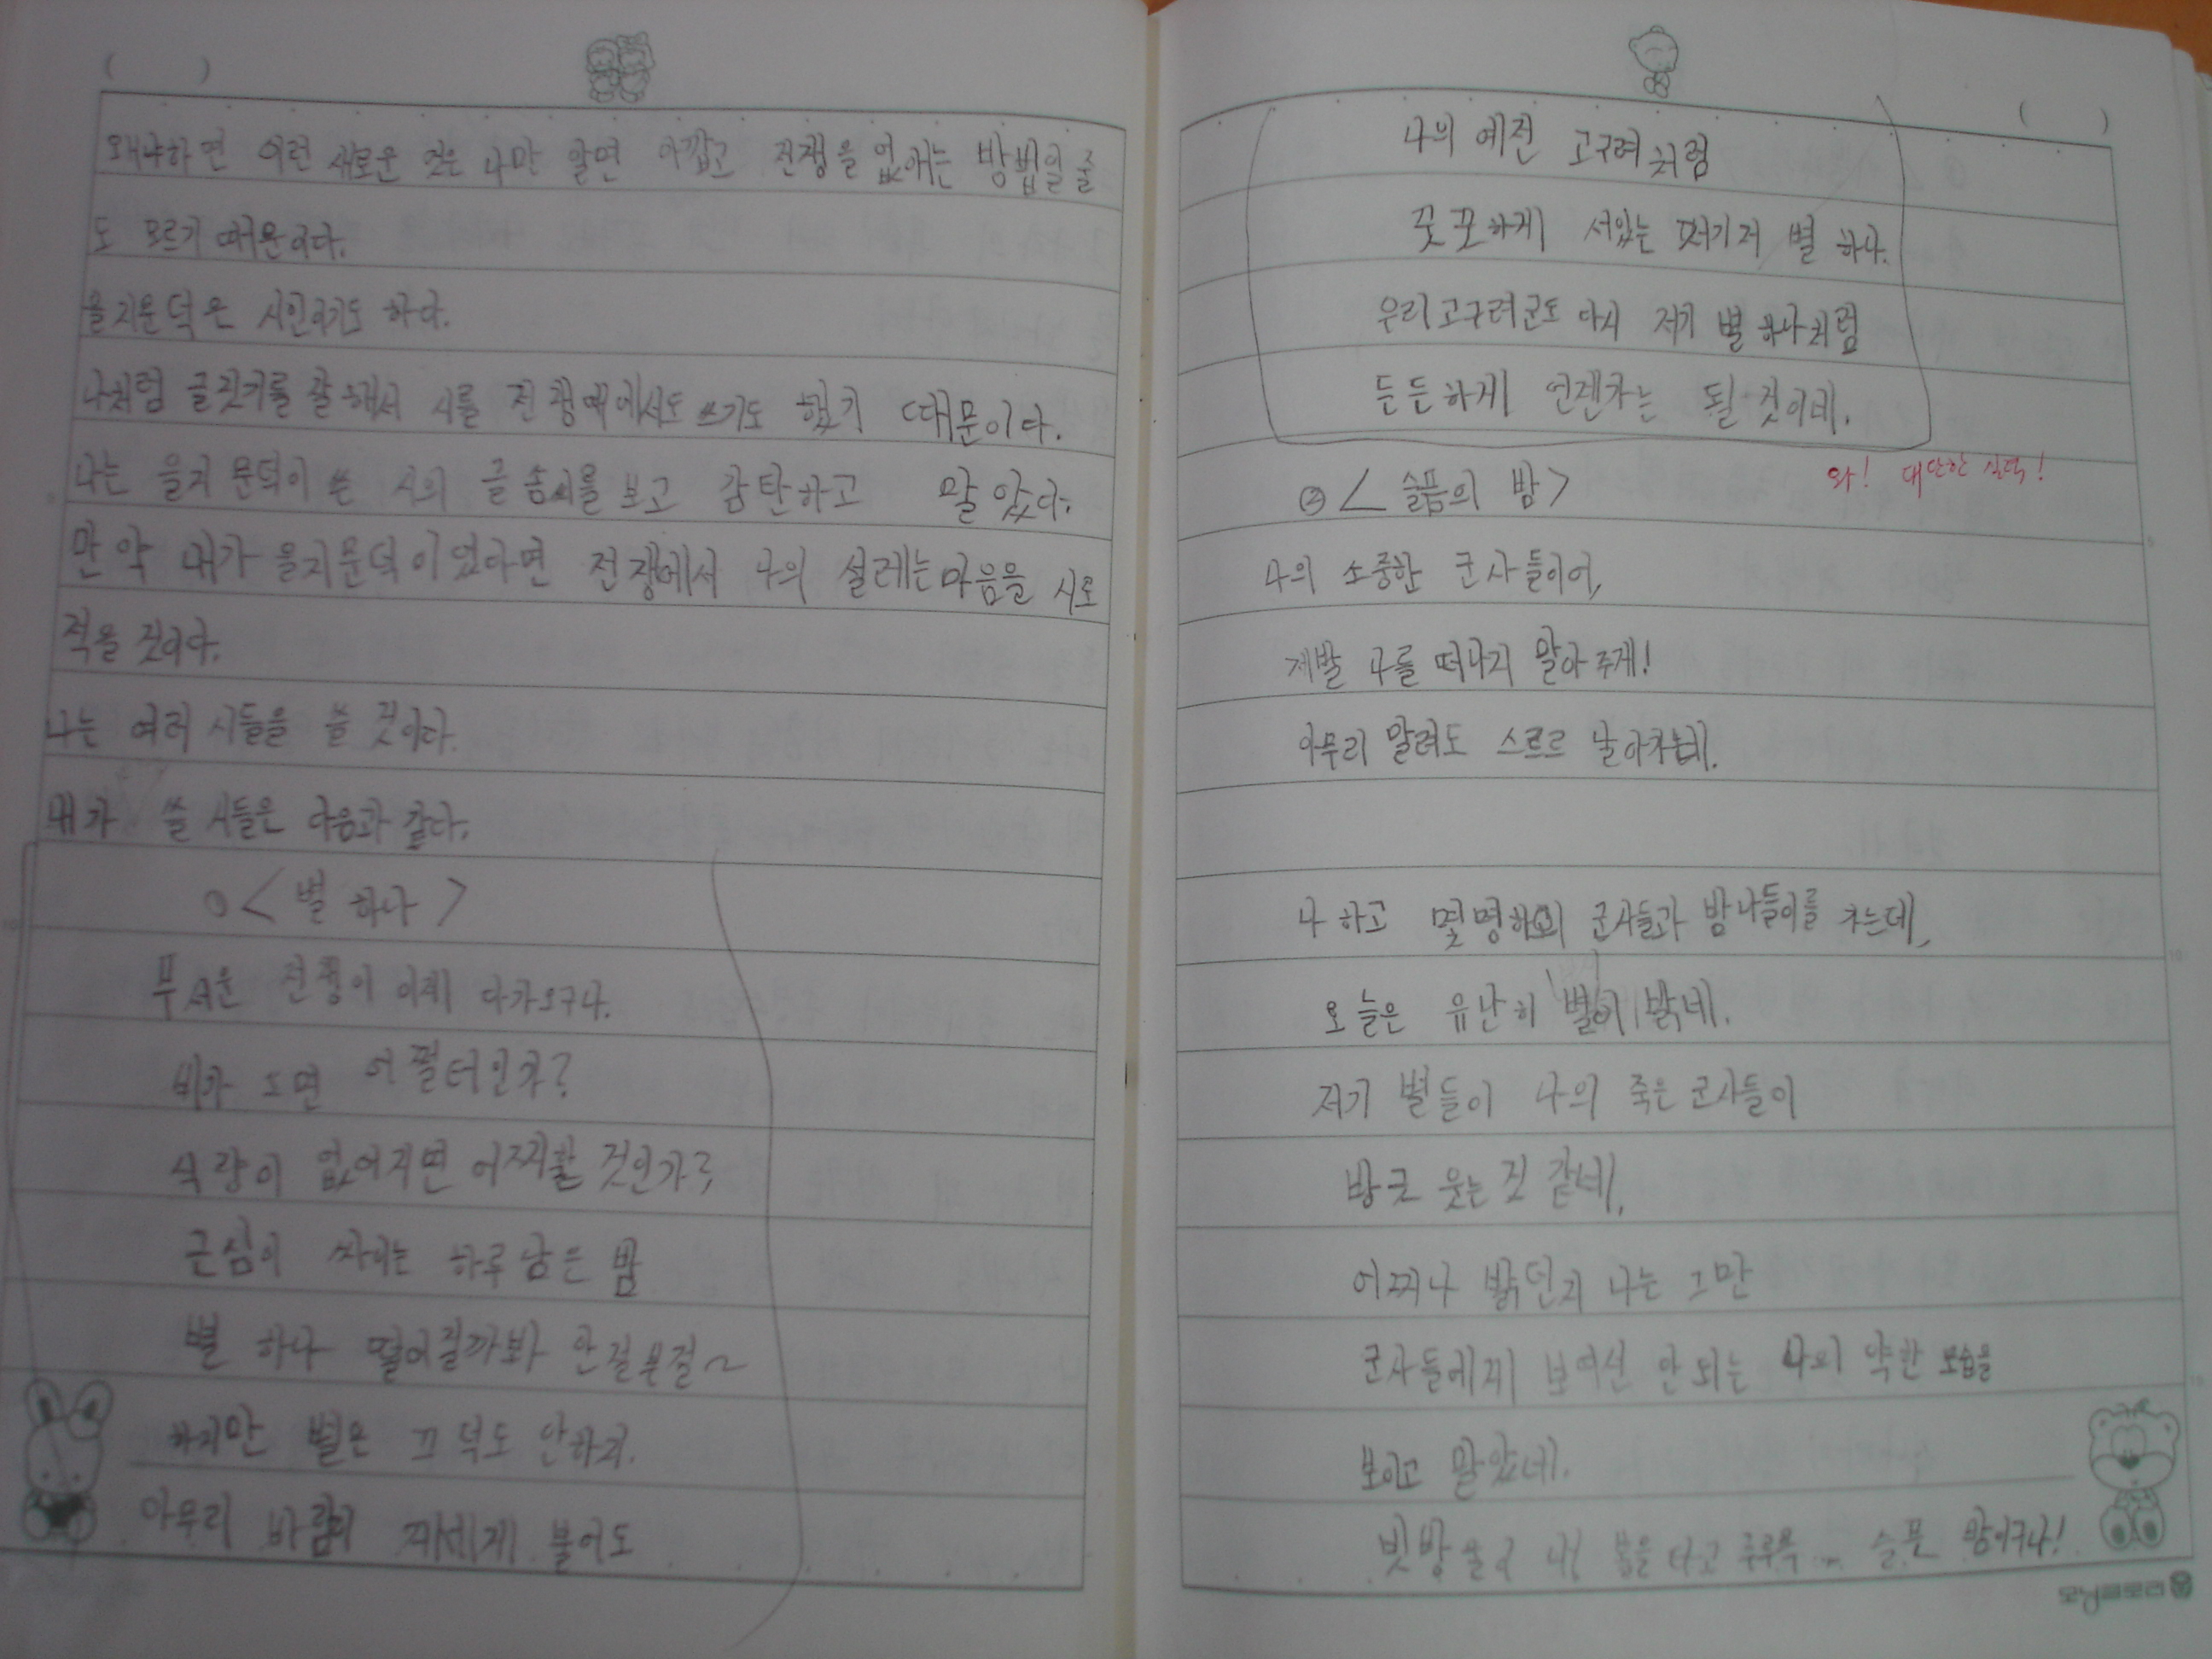 왜냐하면 이런 새로운 것은 나만 알면 아깝고 전쟁을 없애는 방법일 줄
도 모르기 때문이다.
을지문덕은 시인이기도 하다.
나처럼 글짓기를 잘 해서 시를 전쟁에서도 쓰기도 했기 때문이다.
나는 을지문덕이 쓴 시의 글솜씨를 보고 감탄하고 말았다.
만약 내가 을지문덕이었다면 전쟁에서 나의 설레는 마음을 시로
적을 것이다.
나는 여러 시들을 쓸 것이다.
내가 쓸 시들은 다음과 같다.
① < 별 하나 >
무서운 전쟁이 이제 다가오구나.
비가 오면 어쩔터인가?
식량이 없어지면 어찌할 것인가?
근심이 쌓이는 하루 남은 밤
별 하나 떨어질까봐 안절부절~
하지만 별은 끄덕도 안하지.
아무리 바람이 거세게 불어도
나의 예전 고구려처럼
꿋꿋하게 서있는 저기저 별 하나.
우리고구려군도 다시 저기 별 하나처럼
든든하게 언젠가는 될 것이네.
와! 대단한 실력!
② < 슬픔의 밤 >
나의 소중한 군사들이여,
제발 나를 떠나지 말아주게!
아무리 말려도 스르르 날아가는네.
나 하고 몇명의 군사들과 밤나들이를 가는데,
오늘은 유난히 별이 밝네.
저기 별들이 나의 죽은 군사들이
방긋 웃는 것 같네,
어찌나 밝던지 나는 그만
군사들에게 보여선 안 되는 나의 약한 모습을
보이고 말았네.
빗방울이 내 볼을 타고 주루룩 ... 슬픈 밤이구나!
모닝글로리